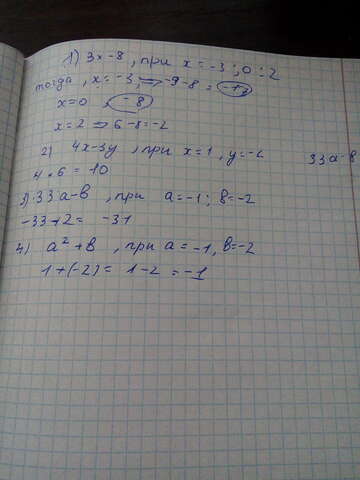 1) 3x-8, при x = -3 ; 0 ; 2
тогда, x = -3, => -9-8 = -17
x=0, -8
x=2 => 6-8=-2
2) 4x-3y, при x=1, y=-2
33a-в
4+6 = 10
3) 33a-в, при a=-1; в=-2
-33+2 = -31
4) a²+в, при a=-1, в=-2
1+(-2)= 1-2 = -1